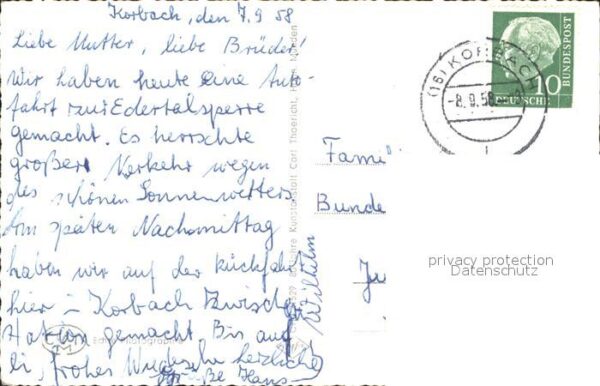 Korbach, den 7.9.58
Liebe Mutter, liebe Brüder!
Wir haben heute eine Auto-
fahrt zur Edertalsperre
gemacht. Es herrschte
großer Verkehr wegen
des schönen Sonnenwetters.
Am späten Nachmittag
haben wir auf der Rückfahrt
hier in Korbach Zwischen
station gemacht. Bis auf
frohes herzliche
Grüße Hans-
Wilhelm
Carl Thoericht, Hann. Münden
Fami
Bunde
Ju
(16) KORBACH
-8.9.58
10
DEUTSCHE
BUNDESPOST
privacy protection
Datenschutz